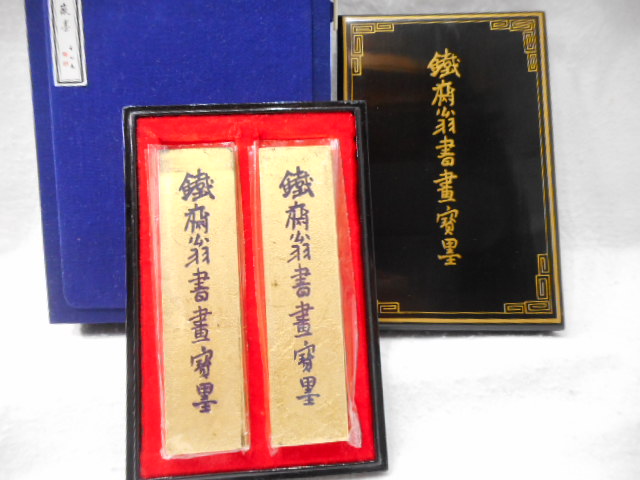 藏墨
鐵齋翁書畫寶墨
鐵齋翁書畫寶墨
鐵齋翁書畫寶墨